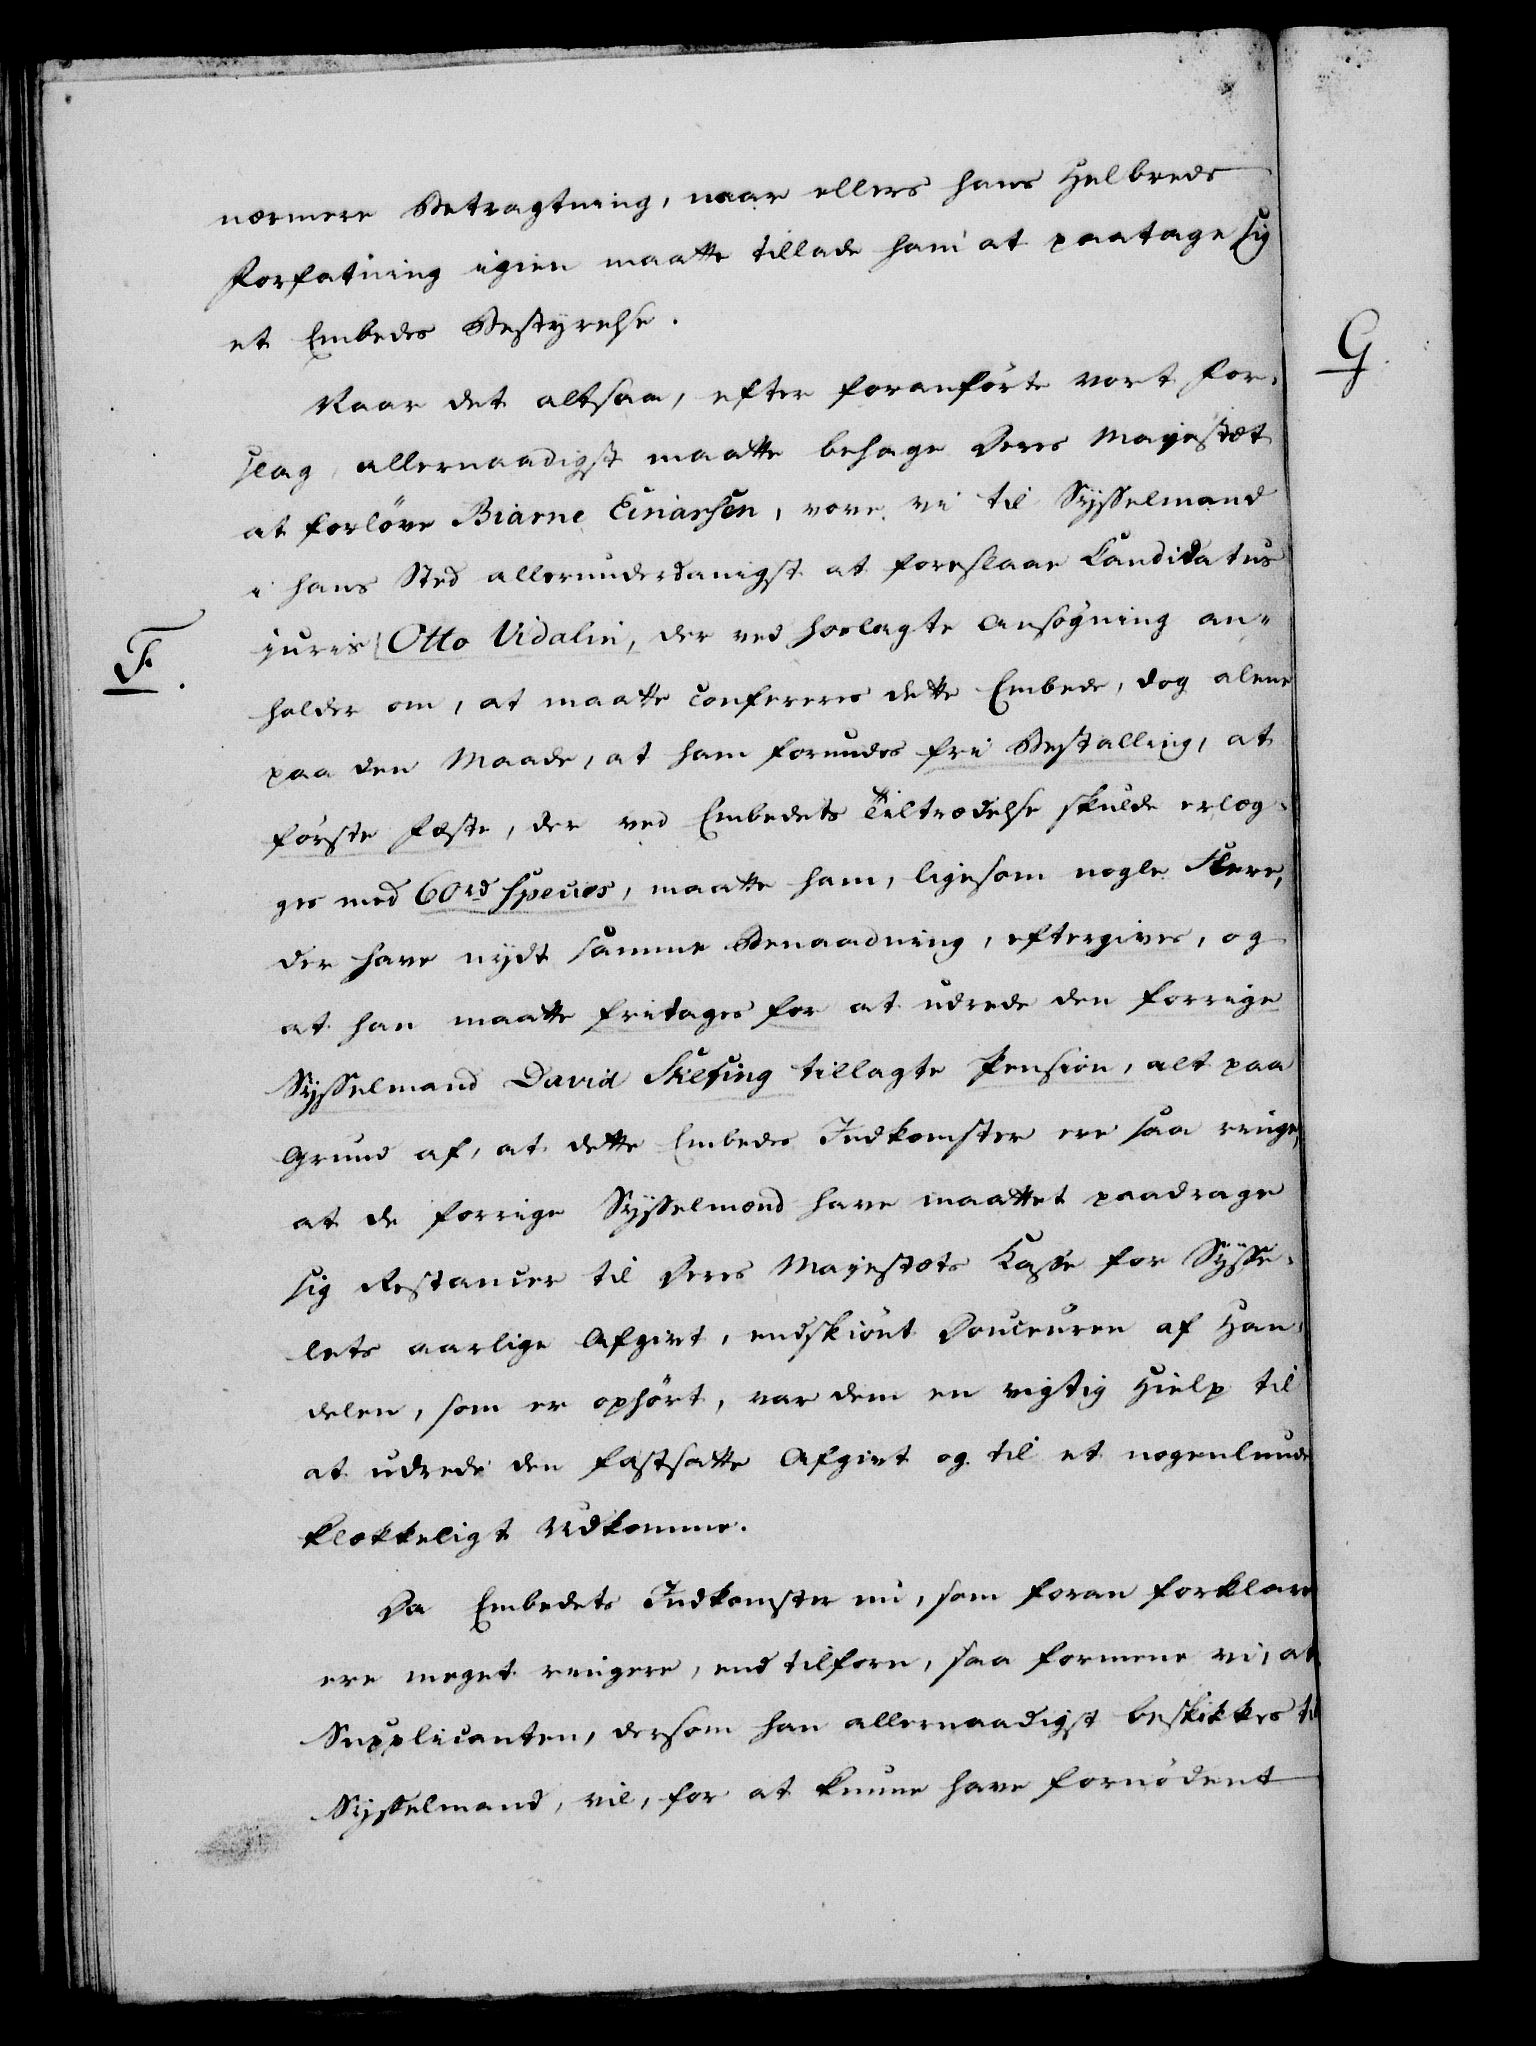 nærmere Betragtning, naar ellers hans Helbreds
Forfatning igien maatte tillade ham at paatage sig
et Embedes Bestyrelse.
G.
Naar det altsaa, efter foranførte vort For-
slag, allernaadigst maatte behage Deres Majestæt
at forløve Biarne Einarsen, vove vi til Sysselmand
i hans Sted allerunderdanigst at foreslaae Candidatus
F.
juris Otto Vidalin, der ved hoslagte Ansøgning an-
holder om, at maatte confereres dette Embede, dog alene
paa den Maade, at ham forundes fri Bestalling, at
første Fæste, der ved Embedets Tiltrædelse skulde erlæg-
ges med 60 rd Species, maatte ham, ligesom nogle Flere,
der have nydt samme Benaadning, eftergives, og
at han maatte fritages for at udrede den forrige
Sysselmand David Skeving tillagte Pension, alt paa
Grund af, at dette Embedes Indkomster ere saa ringe,
at de forrige Sysselmænd have maattet paadrage
sig Restancer til Deres Majestæts Kasse for Sysse-
lets aarlige Afgivt, endskiønt Douceuren af Han-
delen, som er ophørt, var dem en vigtig Hielp til
at udrede den fastsatte Afgivt og til et nogenlunde
klækkeligt Udkomme.
Da Embedets Indkomster nu, som foran forklaret
ere meget ringere, end tilforn, saa formene vi, at
Supplicanten, dersom han allernaadigst beskikkes til
Sysselmand, vil, for at kunne have fornødent